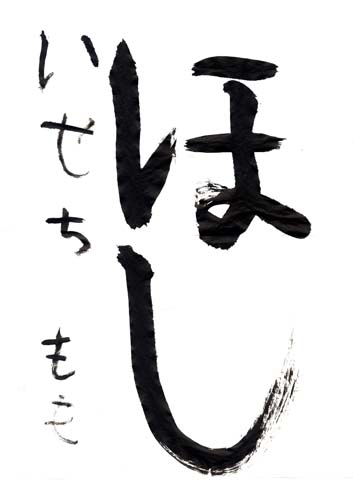 ほし
いせちもも